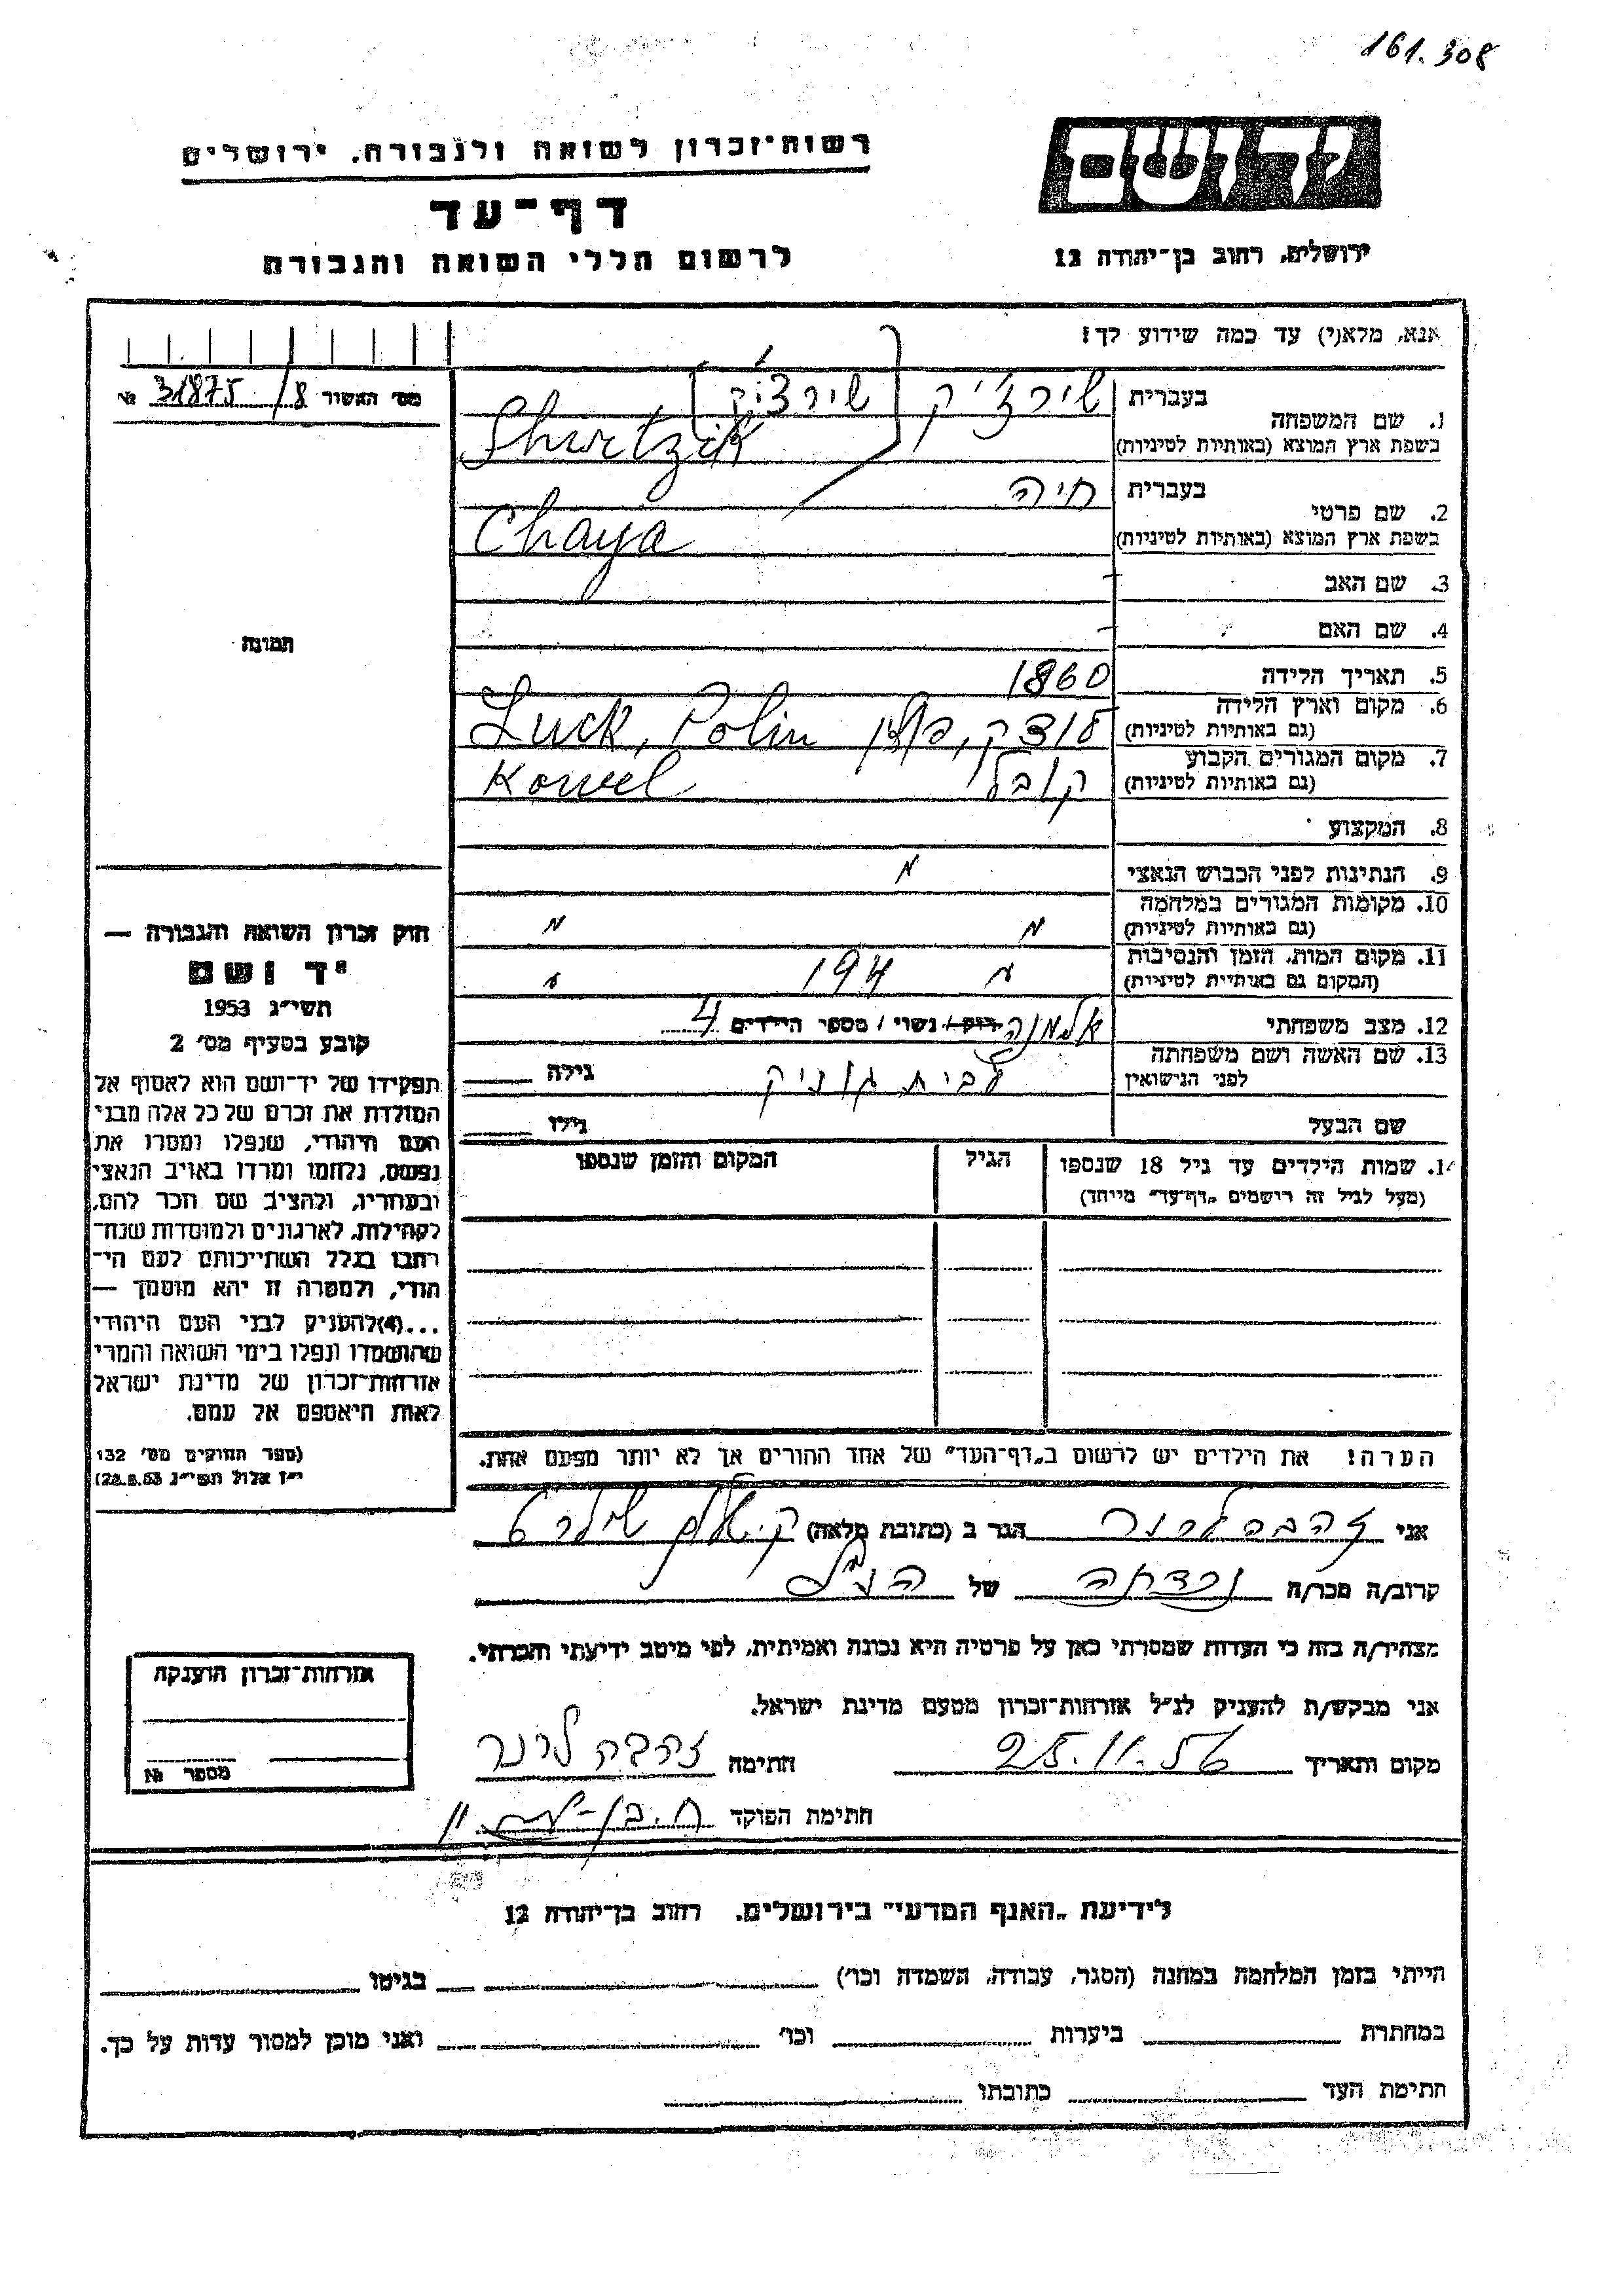 161.308
יד ושם
רשות־זכרון לשואה ולגבורה, ירושלים
דף־עד
לרשום חללי השואה והגבורה
ירושלים, רחוב בן־יהודה 12
אנא, מלא(י) עד כמה שידוע לך!
מס' האשור 8/ 31875 №
1. שם המשפחה
בעברית שירצ'יק [שירצ'יק]
בשפת ארץ המוצא (באותיות לטיניות) Shirtzik
2. שם פרטי
בעברית חיה
בשפת ארץ המוצא (באותיות לטיניות) Chaya
3. שם האב -
4. שם האם -
תמונה
5. תאריך הלידה 1860
6. מקום וארץ הלידה
(גם באותיות לטיניות) לוצק, פולין Luck, Polin
7. מקום המגורים הקבוע
(גם באותיות לטיניות) קובל Kowel
8. המקצוע
9. הנתינות לפני הכבוש הנאצי "
10. מקומות המגורים במלחמה
(גם באותיות לטיניות) " "
11. מקום המות, הזמן והנסיבות
(המקום גם באותיות לטיניות) " 194 "
12. מצב משפחתי אלמנה רווק / נשוי / מספר הילדים 4
13. שם האשה ושם משפחתה
לפני הנישואין לבית גוניק גילה
שם הבעל גילו
14. שמות הילדים עד גיל 18 שנספו
(מעל לגיל זה רושמים „דף־עד" מיוחד)
הגיל
המקום והזמן שנספו
חוק זכרון השואה והגבורה —
יד ושם
תשי"ג 1953
קובע בסעיף מס' 2
תפקידו של יד־ושם הוא לאסוף אל
המולדת את זכרם של כל אלה מבני
העם היהודי, שנפלו ומסרו את
נפשם, נלחמו ומרדו באויב הנאצי
ובעוזריו, ולהציב שם וזכר להם,
לקהילות, לארגונים ולמוסדות שנח־
רבו בגלל השתייכותם לעם הי־
הודי, ולמטרה זו יהא מוסמך —
...(4)להעניק לבני העם היהודי
שהושמדו ונפלו בימי השואה והמרי
אזרחות־זכרון של מדינת ישראל
לאות היאספם אל עמם.
(ספר החוקים מס' 132
י"ז אלול תשי"ג 28.8.53)
הערה! את הילדים יש לרשום ב„דף־העד" של אחד ההורים אך לא יותר מפעם אחת.
אני זהבה לרנר הגר ב (כתובת מלאה) ק.
קרוב/ה מכר/ה נכדתה של הנ"ל
מצהיר/ה בזה כי העדות שמסרתי כאן על פרטיה היא נכונה ואמיתית, לפי מיטב ידיעתי והכרתי.
אני מבקש/ת להעניק לנ"ל אזרחות־זכרון מטעם מדינת ישראל.
מקום ותאריך 25.11.56 חתימה זהבה לרנר
חתימת הפוקד
אזרחות־זכרון הוענקה
מספר №
לידיעת „האגף המדעי" בירושלים, רחוב בן־יהודה 12
הייתי בזמן המלחמה במחנה (הסגר, עבודה, השמדה וכו') בגיטו
במחתרת ביערות וכו' ואני מוכן למסור עדות על כך.
חתימת העד כתובתו